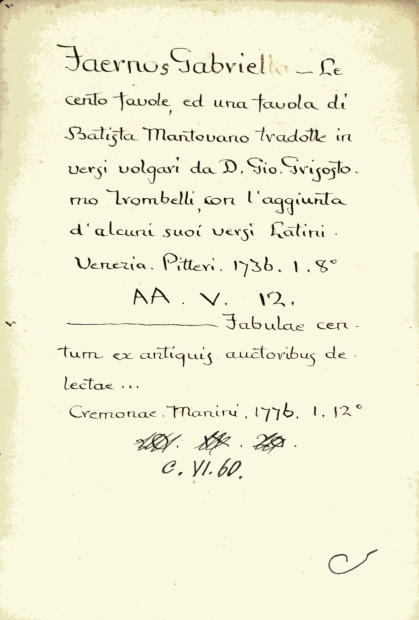 Faernus Gabriello — Le
cento favole, ed una favola di
Batista Mantovano tradotte in
versi volgari da D. Gio. Grisosto-
mo Trombelli, con l'aggiunta
d'alcuni suoi versi Latini.
Venezia. Pitteri. 1736. 1. 8°
AA. V. 12.
——— Fabulae cen-
tum ex antiquis auctoribus de-
lectae ...
Cremonae. Manini, 1776. 1. 12°
C. VI. 60.